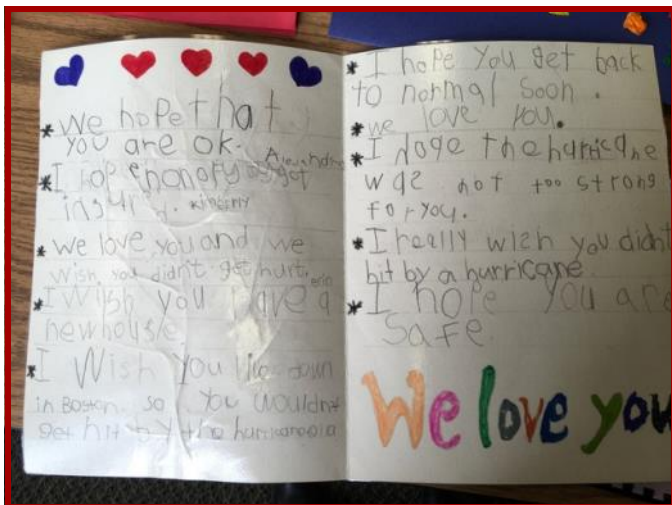 * We hope that
you are ok. Alexandra
* I hope nonofy of got
insurd. Kimberly
* we love you and we
wish you didn't get hurt. erin
* I wish you have a
newhouse.
* I Wish you live down
in Boston. so you wouldnt
get hit by the hurricane
* I hope You get back
to normal soon.
* we love you.
* I hope the hurricane
was not too strong
for you.
* I really wish you didn't
hit by a hurricane.
* I hope you are
safe.
We love you